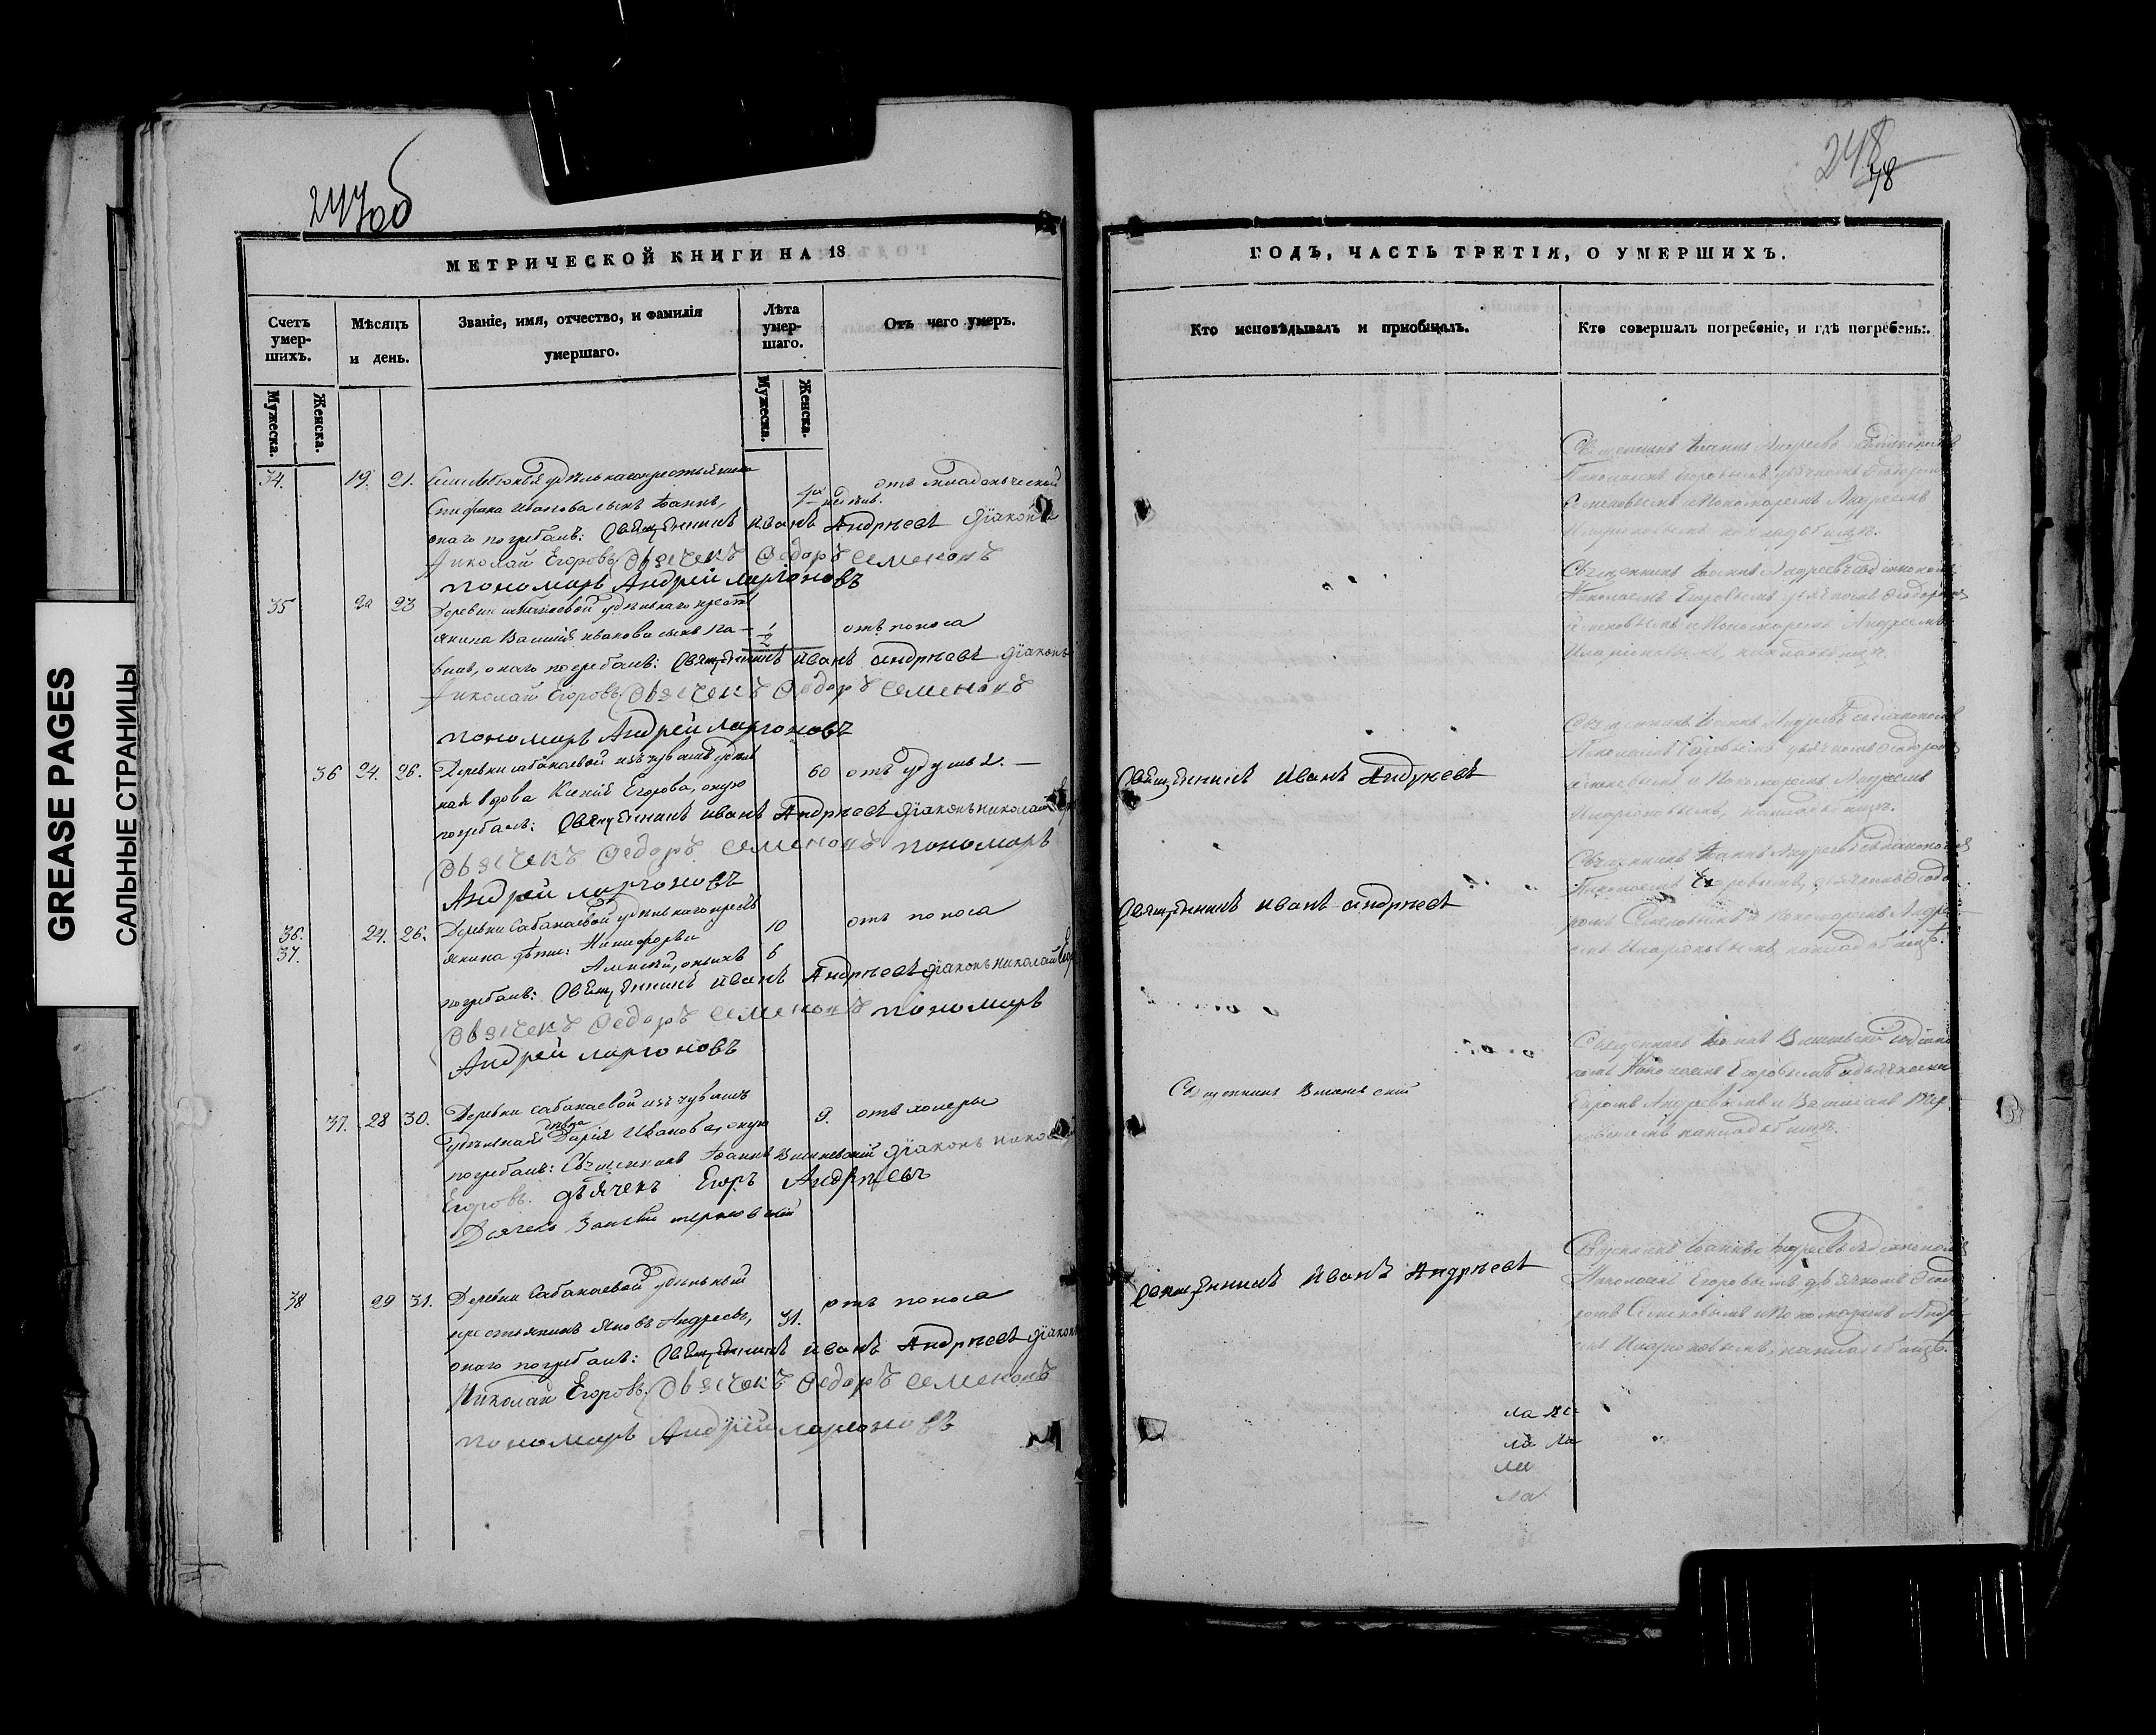 GREASE PAGES
САЛЬНЫЕ СТРАНИЦЫ
247об
МЕТРИЧЕСКОЙ КНИГИ НА 18
Счетъ умер-шихъ.
Мужеска.
Женска.
Мѣсяцъ и день.
Званіе, имя, отчество, и фамилія
умершаго.
Лѣта умер-шаго.
Мужеска.
Женска.
Отъ чего умеръ.
34. 19. 21. удѣльнаго крестьянина отъ младенческой
Иванова сынъ Іоаннъ,
онаго погребалъ: Священникъ Иванъ Андреевъ Діаконъ
Николай Егоровъ Дьячекъ Федоръ Семеновъ
пономарь Андрей Ларионовъ
35 20 23 Деревни удѣльнаго кресть
янина Василія Иванова сынъ Па- 1/2 отъ поноса
велъ, онаго погребалъ: Священникъ Иванъ Андреевъ Діаконъ
Николай Егоровъ Дьячекъ Федоръ Семеновъ
пономарь Андрей Ларионовъ
36 24. 26. Деревни Сабанаевой изъ чувашъ удѣль 60 отъ удушья. —
ная вдова Ксенія Егорова, оную
погребалъ: Священникъ Иванъ Андреевъ Діаконъ Николай
Дьячекъ Федоръ Семеновъ пономарь
Андрей Ларионовъ
36. 24. 26. Деревни Сабанаевой удѣльнаго кресть 10 отъ поноса
37. янина дѣти: Никифоръ и
Алексѣй, оныхъ 6
погребалъ: Священникъ Иванъ Андреевъ Діаконъ Николай Егор
Дьячекъ Федоръ Семеновъ пономарь
Андрей Ларионовъ
37. 28 30. Деревни Сабанаевой изъ чувашъ 9. отъ холеры
удѣльная дѣвка Дарія Иванова, оную
погребалъ: Священникъ Іоаннъ Вишневскій Діаконъ Николай
Егоровъ. Дьячекъ Егоръ Андреевъ
Дьячекъ Василій
38 29 31. Деревни Сабанаевой удѣльный
крестьянинъ Яковъ Андреевъ, 31. отъ поноса
онаго погребалъ: Священникъ Иванъ Андреевъ Діаконъ
Николай Егоровъ. Дьячекъ Федоръ Семеновъ
пономарь Андрей Ларионовъ
248
78
ГОДЪ, ЧАСТЬ ТРЕТІЯ, О УМЕРШИХЪ.
Кто исповѣдывалъ и приобщалъ.
Кто совершалъ погребеніе, и гдѣ погребены.
Священникъ Іоаннъ Андреевъ съ діакономъ
Николаемъ Егоровымъ, дьячкомъ Феодоромъ
Семеновымъ и Пономаремъ Андреемъ
Иларіоновымъ, на кладбищѣ.
Священникъ Іоаннъ Андреевъ съ діакономъ
Николаемъ Егоровымъ, дьячкомъ Феодоромъ
Семеновымъ и Пономаремъ Андреемъ
Иларіоновымъ, на кладбищѣ.
Священникъ Иванъ Андреевъ
Священникъ Іоаннъ Андреевъ съ діакономъ
Николаемъ Егоровымъ, дьячкомъ Феодоромъ
Семеновымъ и Пономаремъ Андреемъ
Иларіоновымъ, на кладбищѣ.
Священникъ Иванъ Андреевъ
Священникъ Іоаннъ Андреевъ съ діакономъ
Николаемъ Егоровымъ, дьячкомъ Феодо
ромъ Семеновымъ и Пономаремъ Андре
емъ Иларіоновымъ, на кладбищѣ.
Священникъ Вишневский
Священникъ Іоаннъ Вишневскій съ діако
номъ Николаемъ Егоровымъ дьячками
Егоромъ Андреевымъ и Василіемъ Тер
на кладбищѣ.
Священникъ Иванъ Андреевъ
Священникъ Іоаннъ Андреевъ съ діакономъ
Николаемъ Егоровымъ, дьячкомъ Феод
ромъ Семеновымъ и Пономаремъ Андре
емъ Иларіоновымъ, на кладбищѣ.